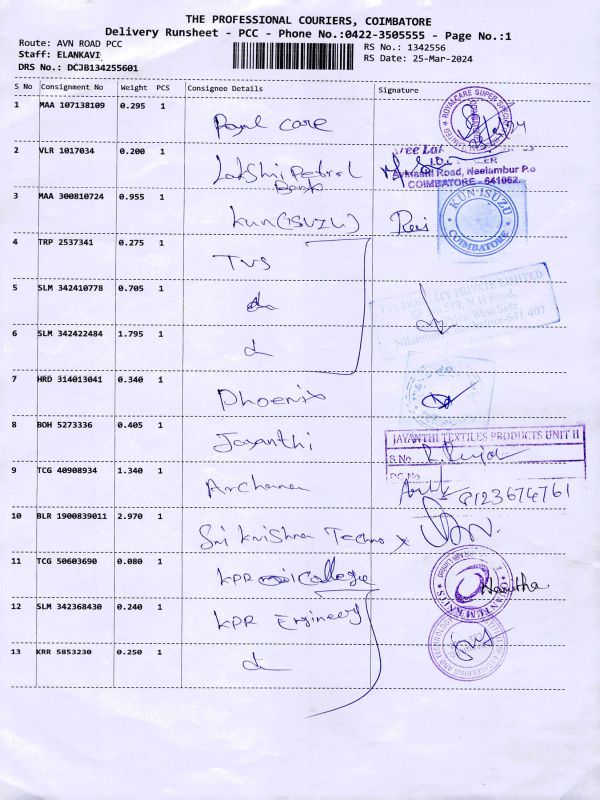 THE PROFESSIONAL COURIERS, COIMBATORE
Delivery Runsheet - PCC - Phone No.:0422-3505555 - Page No.:1
Route: AVN ROAD PCC
RS No.: 1342556
Staff: ELANKAVI
RS Date: 25-Mar-2024
DRS No.: DCJB134255601
S No Consignment No Weight PCS Consignee Details Signature
1 MAA 107138109 0.295 1 Royal care
2 VLR 1017034 0.200 1 Lakshmi Petrol Bank
Avinashi Road, Neelambur P.o
COIMBATORE - 641062.
3 MAA 300810724 0.955 1 Kun (ISUZU) Ravi
KUN-ISUZU COIMBATORE
4 TRP 2537341 0.275 1 TVS
5 SLM 342410778 0.705 1 do
6 SLM 342422484 1.795 1 do
7 HRD 314013041 0.340 1 Phoenix
8 BOH 5273336 0.405 1 Jayanthi
JAYANTHI TEXTILES PRODUCTS UNIT II
S.No
9 TCG 40908934 1.340 1 Archana
8123674761
10 BLR 1900839011 2.970 1 Sri Krishna Techno x
11 TCG 50603690 0.080 1 KPR College
Haritha
12 SLM 342368430 0.240 1 KPR Engineery
13 KRR 5853230 0.250 1 do